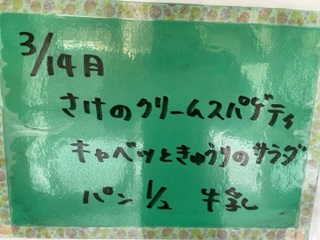 3/14月
さけのクリームスパゲティ
キャベツときゅうりのサラダ
パン1/2 牛乳